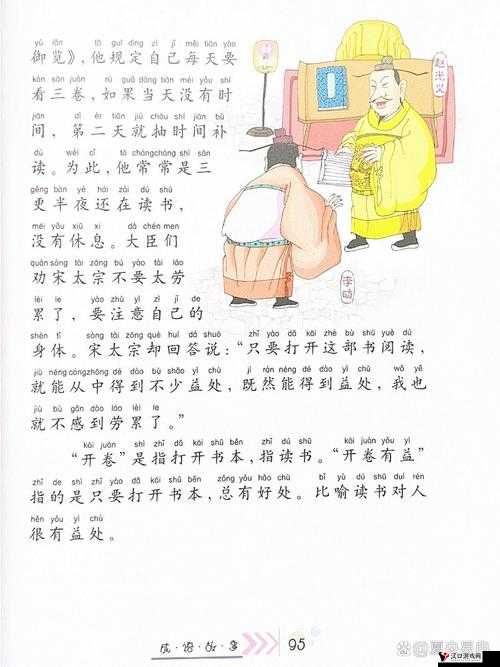 yù lǎn tā guī dìng zì jǐ měi tiān yào
御览》，他规定自己每天要
kàn sān juàn rú guǒ dàng tiān méi yǒu shí
看三卷，如果当天没有时
jiān dì èr tiān jiù chōu shí jiān bǔ
间，第二天就抽时间补
dú wèi cǐ tā chángcháng shì sān
读。为此，他常常是三
gēng bàn yè hái zài dú shū
更半夜还在读书，
méi yǒu xiū xi dà chén men
没有休息。大臣们
quàn sòng tài zōng bú yào tài láo
劝宋太宗不要太劳
lèi le yào zhù yì zì jǐ de
累了，要注意自己的
shēn tǐ sòng tài zōng què huí dá shuō zhǐ yào dǎ kāi zhè bù shū yuè dú
身体。宋太宗却回答说：“只要打开这部书阅读，
jiù néng cóngzhōng dé dào bù shǎo yì chù jì rán néng dé dào yì chù wǒ yě
就能从中得到不少益处，既然能得到益处，我也
jiù bù gǎn dào láo lèi le
就不感到劳累了。”
kāi juàn shì zhǐ dǎ kāi shū běn zhǐ dú shū kāi juàn yǒu yì
“开卷”是指打开书本，指读书。“开卷有益”
zhǐ de shì zhǐ yào dǎ kāi shū běn zǒng yǒu hǎo chù bǐ yù dú shū duì rén
指的是只要打开书本，总有好处。比喻读书对人
hěn yǒu yì chù
很有益处。
赵光义
李昉
成·语·故·事
95
汉口游戏网